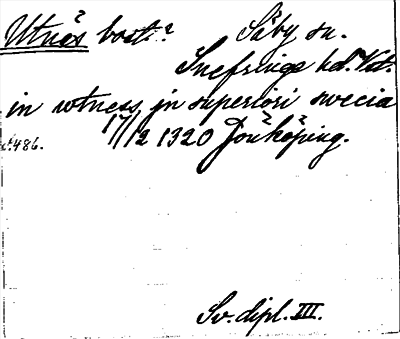 Utnäs bost.? Säby sn.
Snefringe hd. Vstm.
in wtness jn superiori swecia
17/12 1320 Jönköping.
s. 486.
Sv. dipl. III.